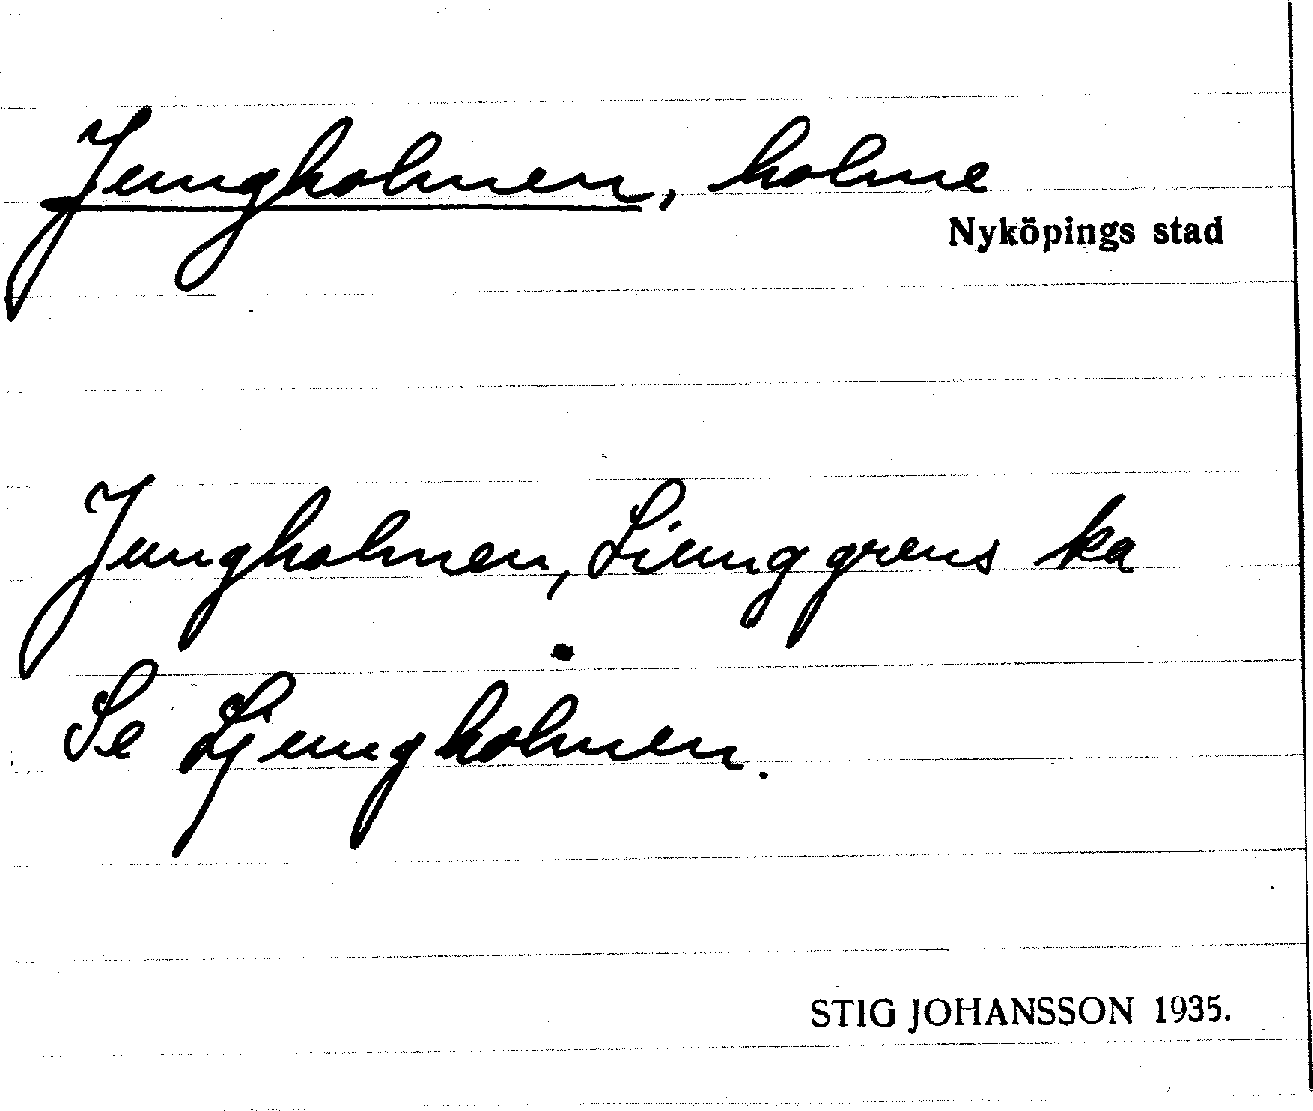 Jungholmen, holme
Nyköpings stad
Jungholmen, Liunggrens ka
Se Ljungholmen.
STIG JOHANSSON 1935.